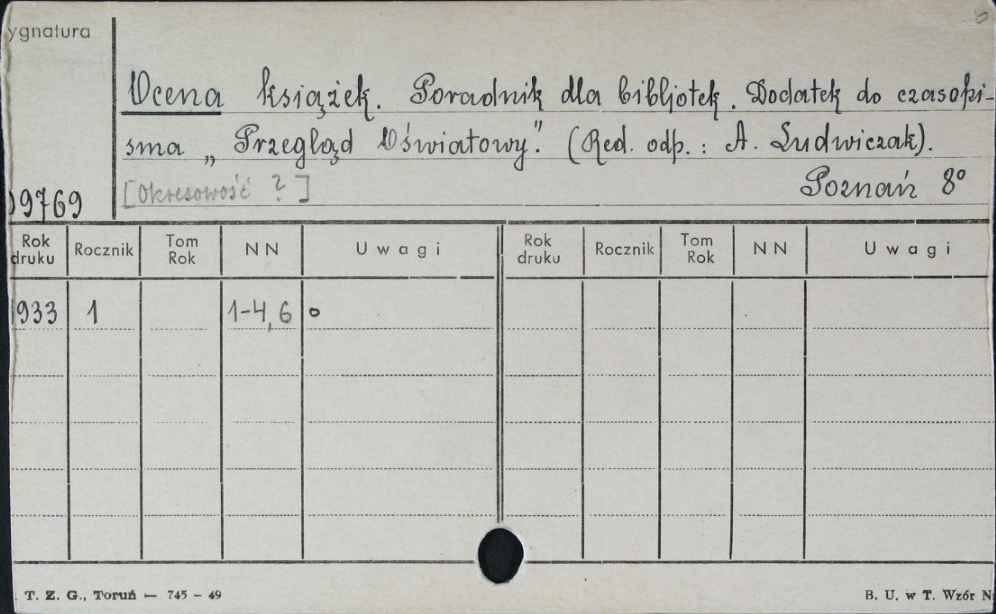 ygnatura
Ocena książek. Poradnik dla bibljotek. Dodatek do czasopi-
sma „Przegląd Oświatowy". (Red. odp.: A. Ludwiczak).
[Okresowość ?] Poznań 8°
09769
Rok druku Rocznik Tom Rok NN Uwagi Rok druku Rocznik Tom Rok NN Uwagi
933 1 1-4, 6 o
T. Z. G., Toruń — 745 – 49 B. U. w T. Wzór N